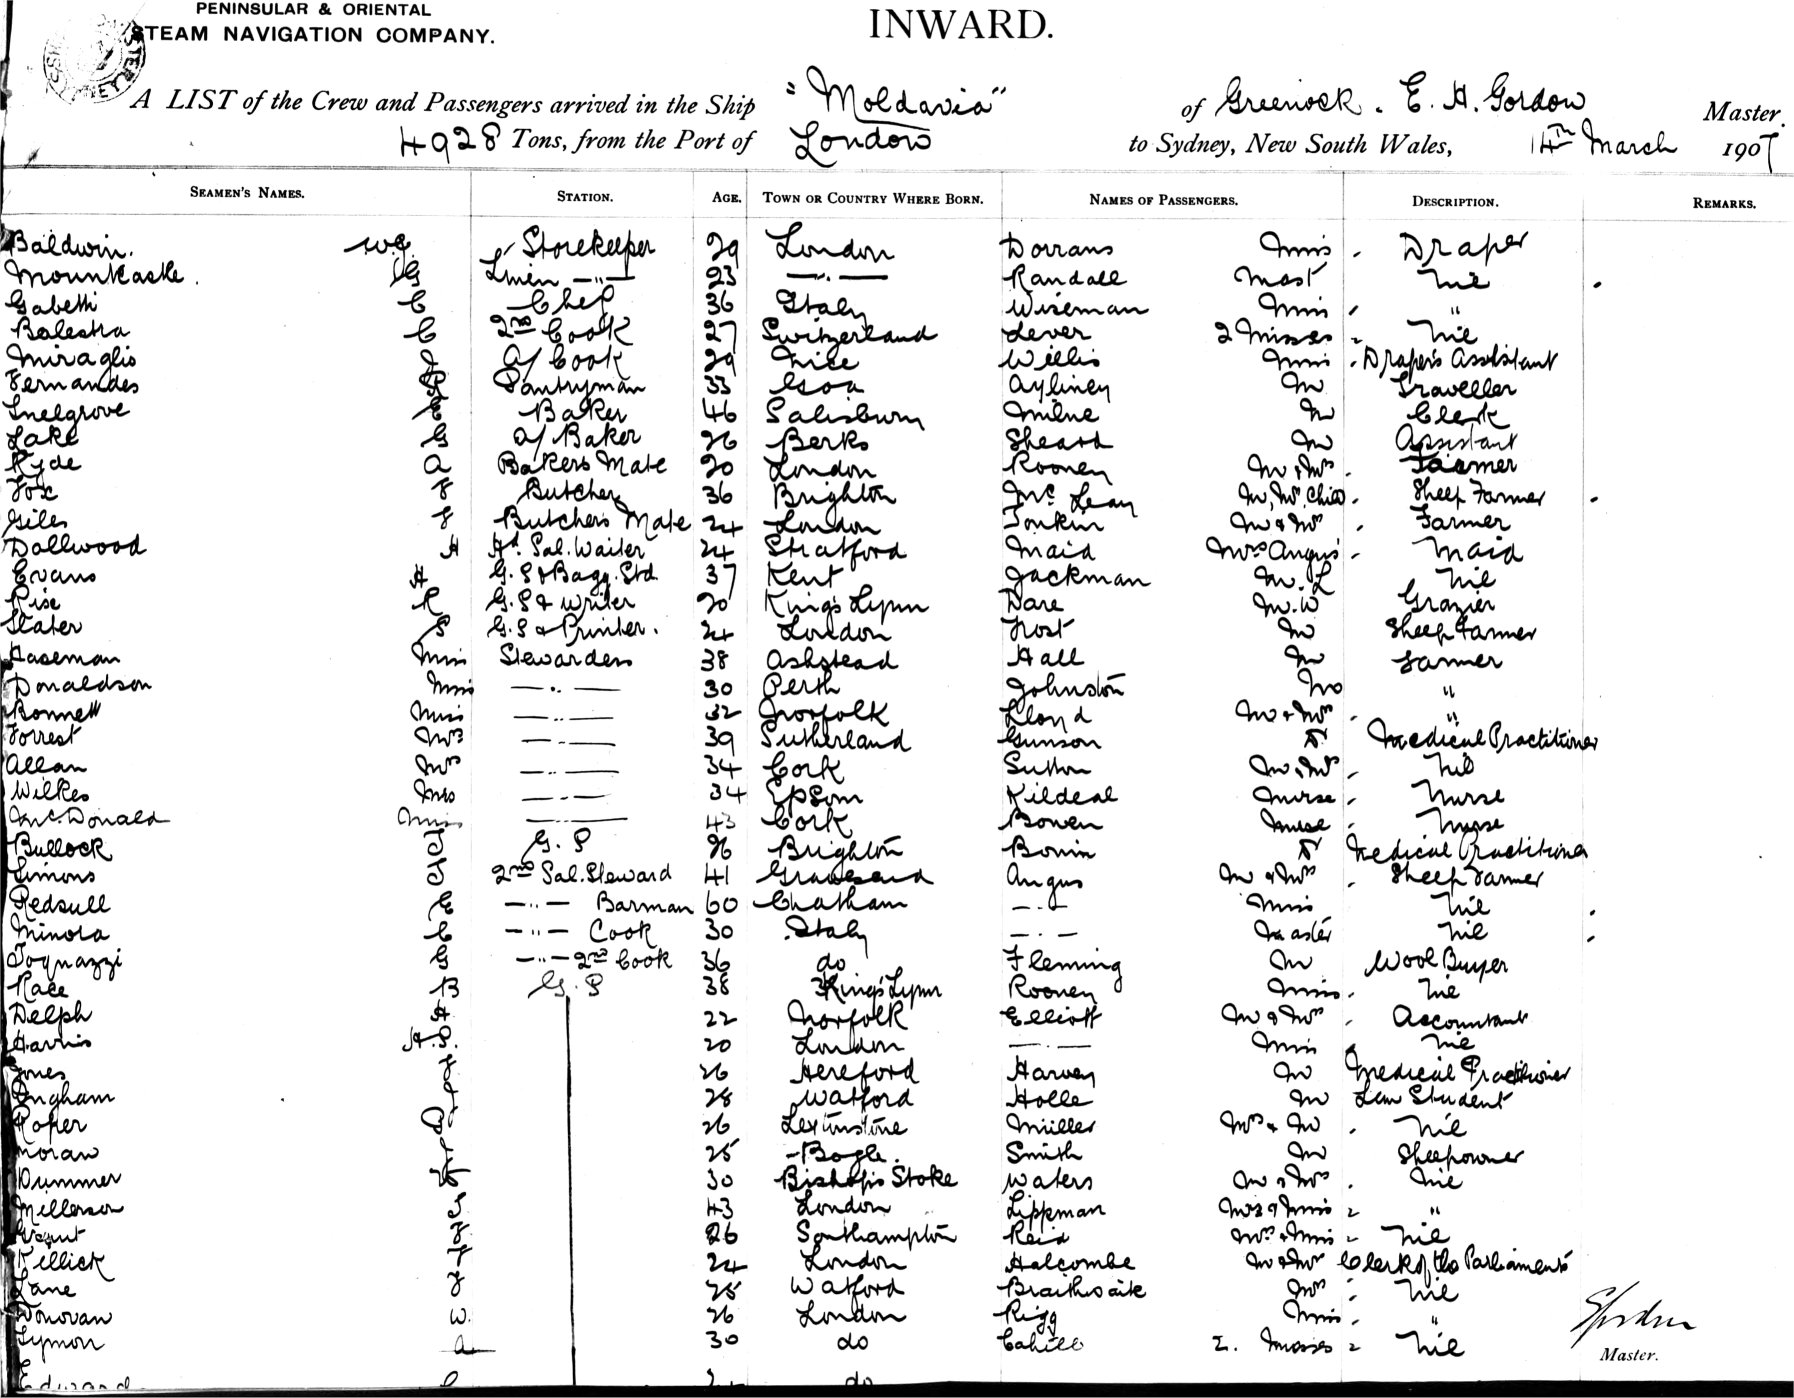 PENINSULAR & ORIENTAL
STEAM NAVIGATION COMPANY.
INWARD.
A LIST of the Crew and Passengers arrived in the Ship "Moldavia" of Greenock. E. H. Gordon Master.
4928 Tons, from the Port of London to Sydney, New South Wales, 14th March 1907
SEAMEN'S NAMES. STATION. AGE. TOWN OR COUNTRY WHERE BORN. NAMES OF PASSENGERS. DESCRIPTION. REMARKS.
Baldwin. W.G. Storekeeper 29 London Dorrans Miss Draper
Mountcastle. G Linen —"— 23 —"— Randall Mast Nil
Gabetti C Chef 36 Italy Wiseman Miss "
Balestra C 2nd Cook 27 Switzerland Lever 2 Misses Nil
Miraglio A/ Cook 29 Nice Willis Miss Draper's Assistant
Fernandes Pantryman 33 Goa Ayliney M Traveller
Snelgrove Baker 46 Salisbury Milne M Clerk
Lake G A/ Baker 26 Berks Sheard M Assistant
Ryde A Bakers Mate 20 London Rooney M & Mrs Farmer
Fox F Butcher 36 Brighton McLean M, Mrs, Child Sheep Farmer
Giles F Butchers Mate 24 London Tonkin M & Mrs Farmer
Dollwood H Hd. Sal. Waiter 24 Stratford Maid Mrs Angus' Maid
Evans H G.S & Bagg. Std. 37 Kent Jackman M. L Nil
Rise R G.S & Writer 20 King's Lynn Dare M. W Grazier
Slater S G.S & Printer. 24 London Frost M Sheep Farmer
Haseman Miss Stewardess 38 Ashstead Hall M Farmer
Donaldson Miss —"— 30 Perth Johnston M "
Bonnett Miss —"— 32 Norfolk Lloyd M & Mrs "
Forrest Mrs —"— 39 Sutherland Gunson Dr Medical Practitioner
Allan Mrs —"— 34 Cork Sutton M & Mrs Nil
Wilkes Mrs —"— 34 Epsom Kildeal Nurse Nurse
McDonald Miss —"— 43 Cork Bowen Nurse Nurse
Bullock J G. S 26 Brighton Bonin Dr Medical Practitioner
Simons J 2nd Sal. Steward 41 Gravesend Angus M & Mrs Sheep Farmer
Redsull E —"— Barman 60 Chatham —"— Miss Nil
Minola C —"— Cook 30 Italy —"— Master Nil
Tognazzi G —"— 2nd Cook 36 do Fleming M Wool Buyer
Race B G. S 38 King's Lynn Rooney Miss Nil
Delph H 22 Norfolk Elliott M & Mrs Accountant
Harris H. S. 20 London —"— Miss Nil
Jones 26 Hereford Harvey M Medical Practitioner
Ingham 28 Watford Holle M Law Student
Roper 26 Leytonstone Müller Mrs & M Nil
Moran 25 Bogle. Smith M Sheepowner
Dummer 30 Bishops Stoke Waters M & Mrs Nil
Millerson S 43 London Lippman Mrs & Miss "
Grant F 26 Southampton Reid Mrs & Miss Nil
Killick F 24 London Halcombe M & Mrs Clerk of the Parliaments
Lane F 25 Watford Braithwaite Mrs Nil
Donovan W. 26 London Rigg Miss "
Symon A 30 do Cahill 2. Misses Nil
Master.
Edward do